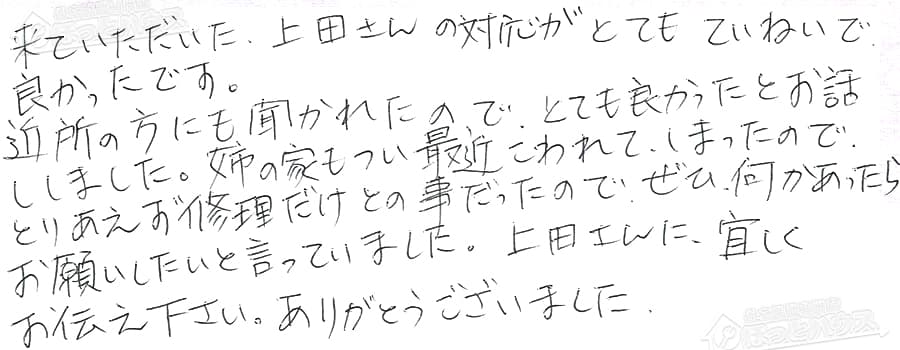 来ていただいた、上田さんの対応がとてもていねいで、
良かったです。
近所の方にも聞かれたので、とても良かったとお話
ししました。姉の家もつい最近こわれて、しまったので、
とりあえず修理だけとの事だったので、ぜひ、何かあったら
お願いしたいと言っていました。上田さんに、宜しく
お伝え下さい。ありがとうございました。